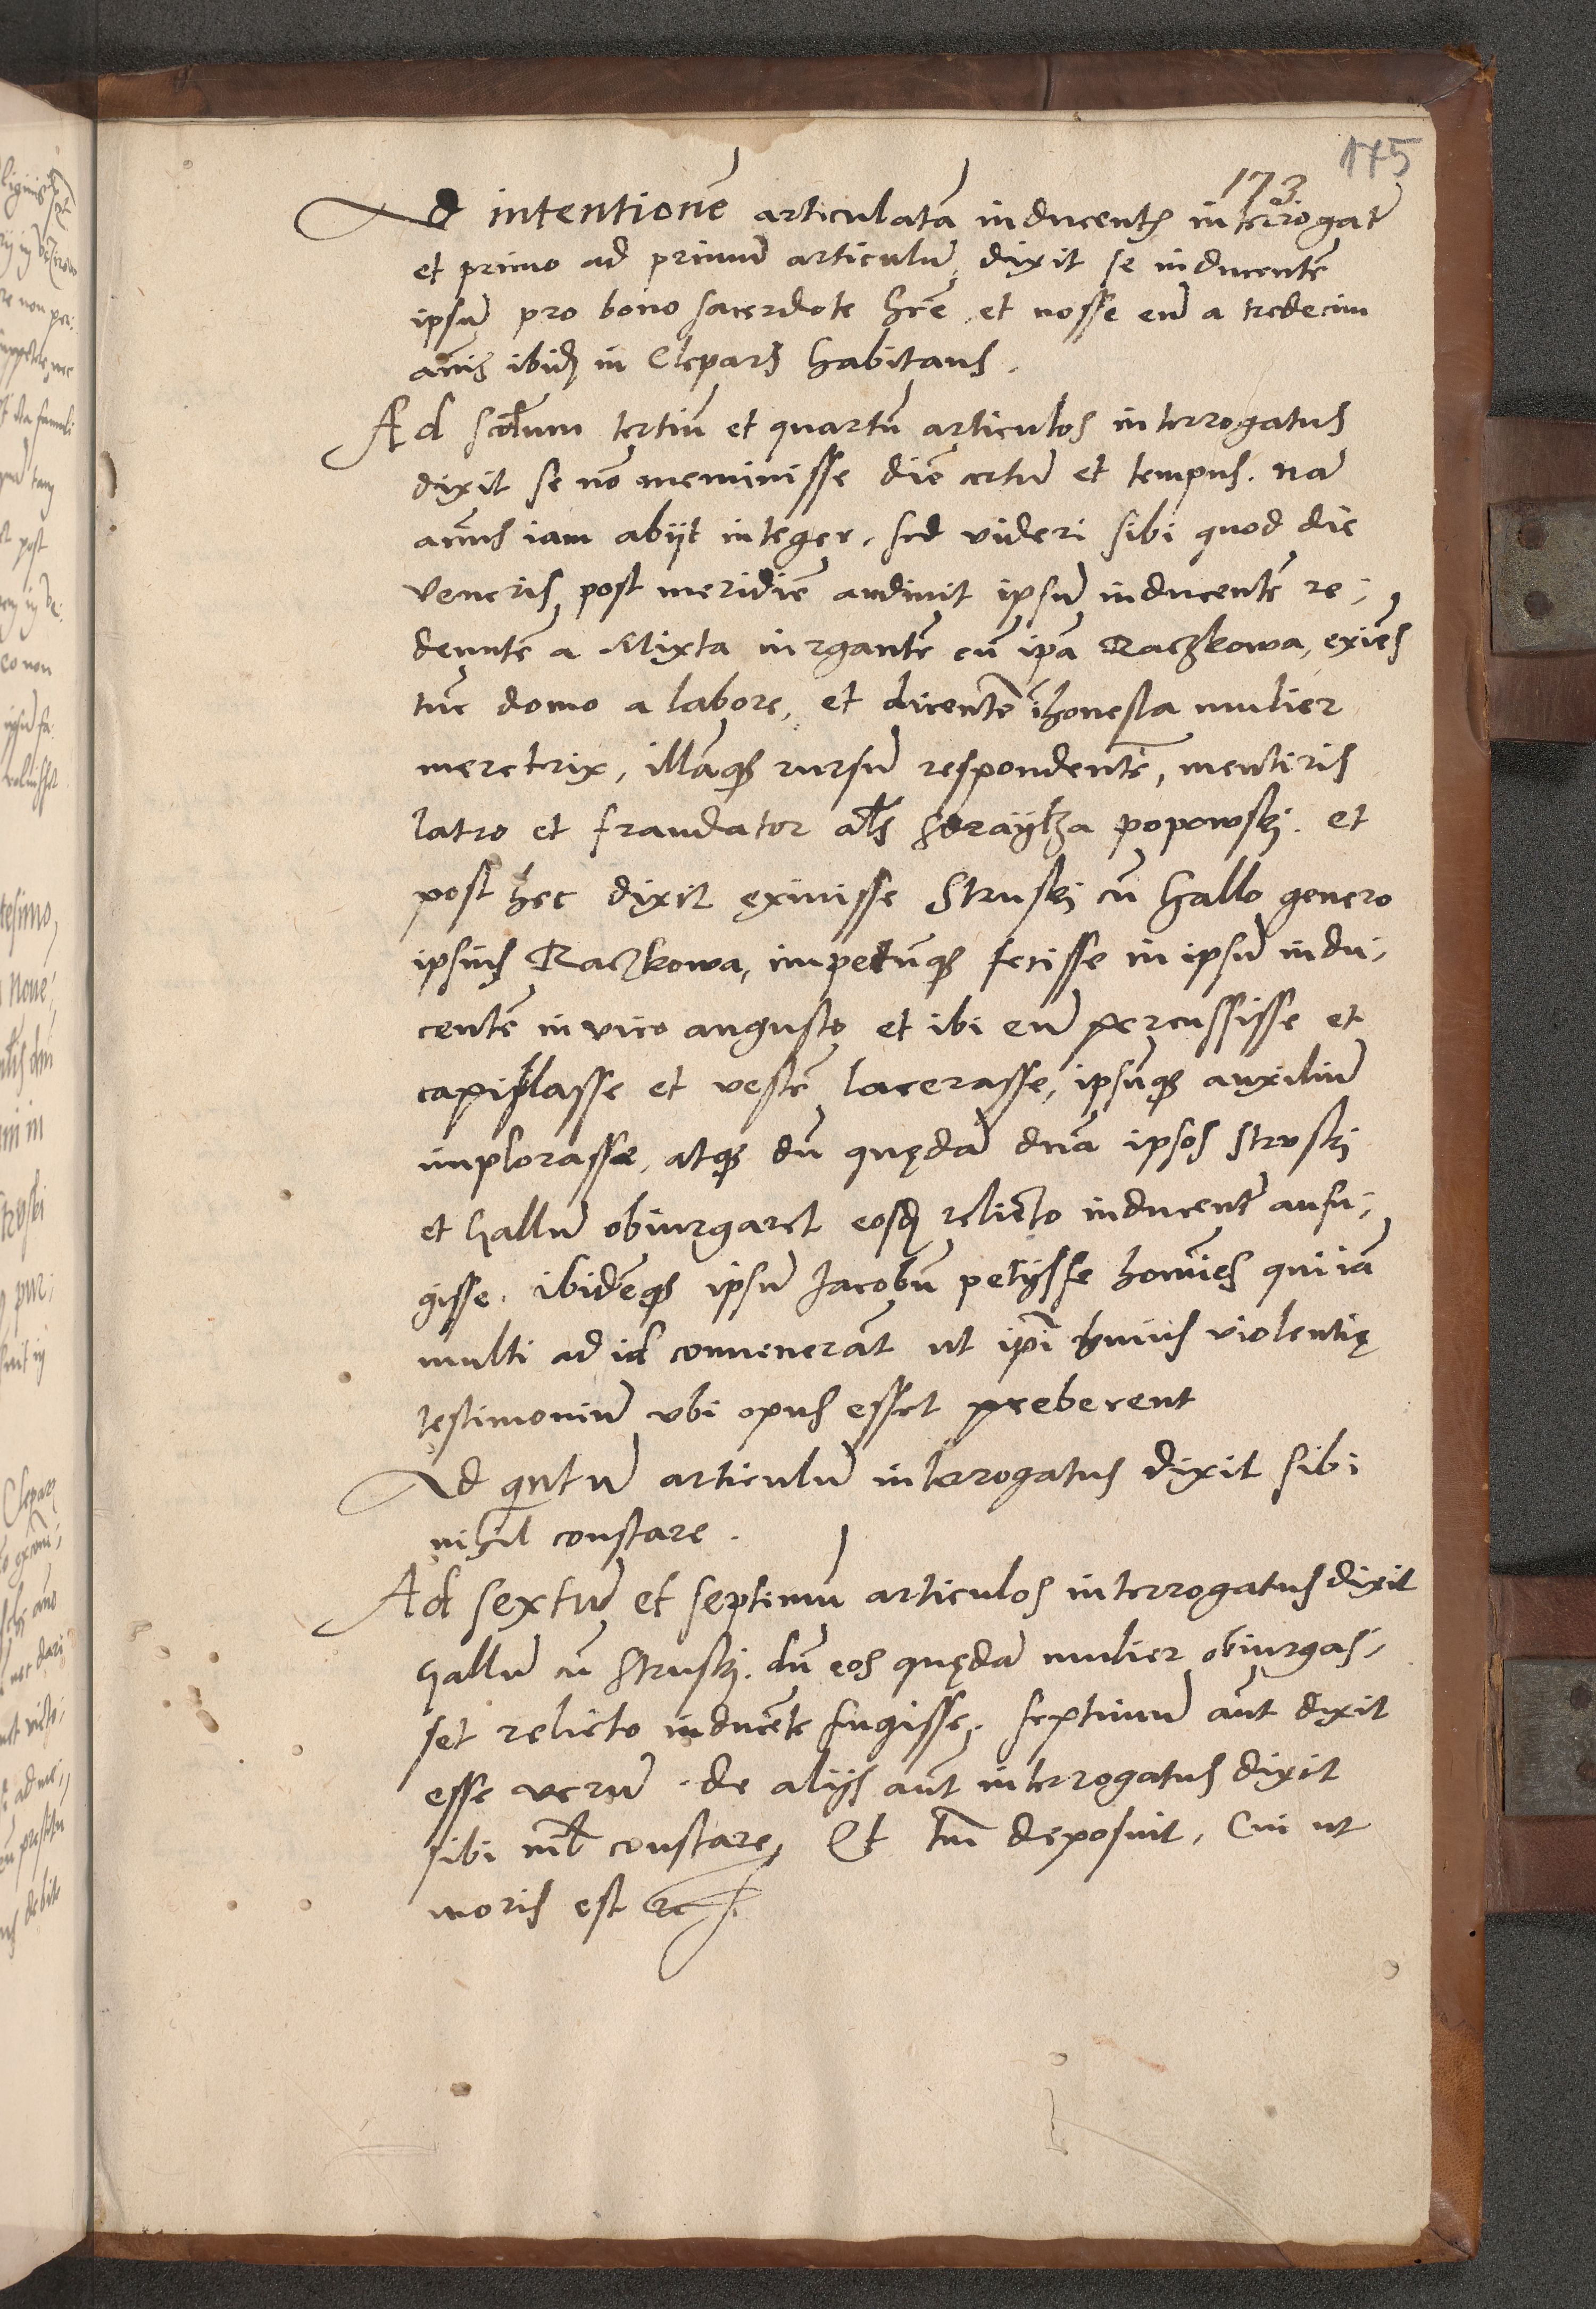 175
173
Ad intentionē articulatā inducentꝭ interrogatꝰ
et primo ad primū articulū, dixit se inducentē
ipsū pro bono sacerdote hr̄e, et nosse eū a tredecim
annis ibidē in Clepars habitans.
Ad scd̄um tertiū et quartū articulos interrogatus
dixit se nō meminisse diē certū et tempus. nā
annus iam abijt integer, sed videri sibi quod die
Veneris post meridiē audiuit ipsū inducentē re-
deuntē a Mixta iurgantē cū ipa Raczkowa, exiēs
tūc domo a labore, et dicentē ihonesta mulier
meretrix, illāqꝫ rursū respondentē, mentiris
latro et fraudator al̄s popowski. et
post hec dixit exiuisse Struski cū Hallo genero
ipsius Raczkowa, impetūqꝫ fecisse in ipsū indu-
centē in vico angusto et ibi eū percussisse et
capillasse et vestē lacerasse, ipsūqꝫ auxiliū
implorasse, atqꝫ dū quędā dnā ipsos Struski
et hallū obiurgaret eosdē relicto inducente aufu-
gisse. ibidēqꝫ ipsū Jacobū petijsse homīes qui iā
multi ad id conuenerāt ut ip̄i huius violentię
testimoniū vbi opus esset preberent
Ad qintū articulū interrogatus dixit sibi
nihil constare.
Ad sextū et septimū articulos interrogatus dixit
hallū cū Struski. dū eos quędā mulier obiurgas-
set relicto inducēte fugisse. septimū aūt dixit
esse verū. de alijs aūt interrogatus dixit
sibi nil̄ constare, Et tm̄ deposuit, Cui ut
moris est &c